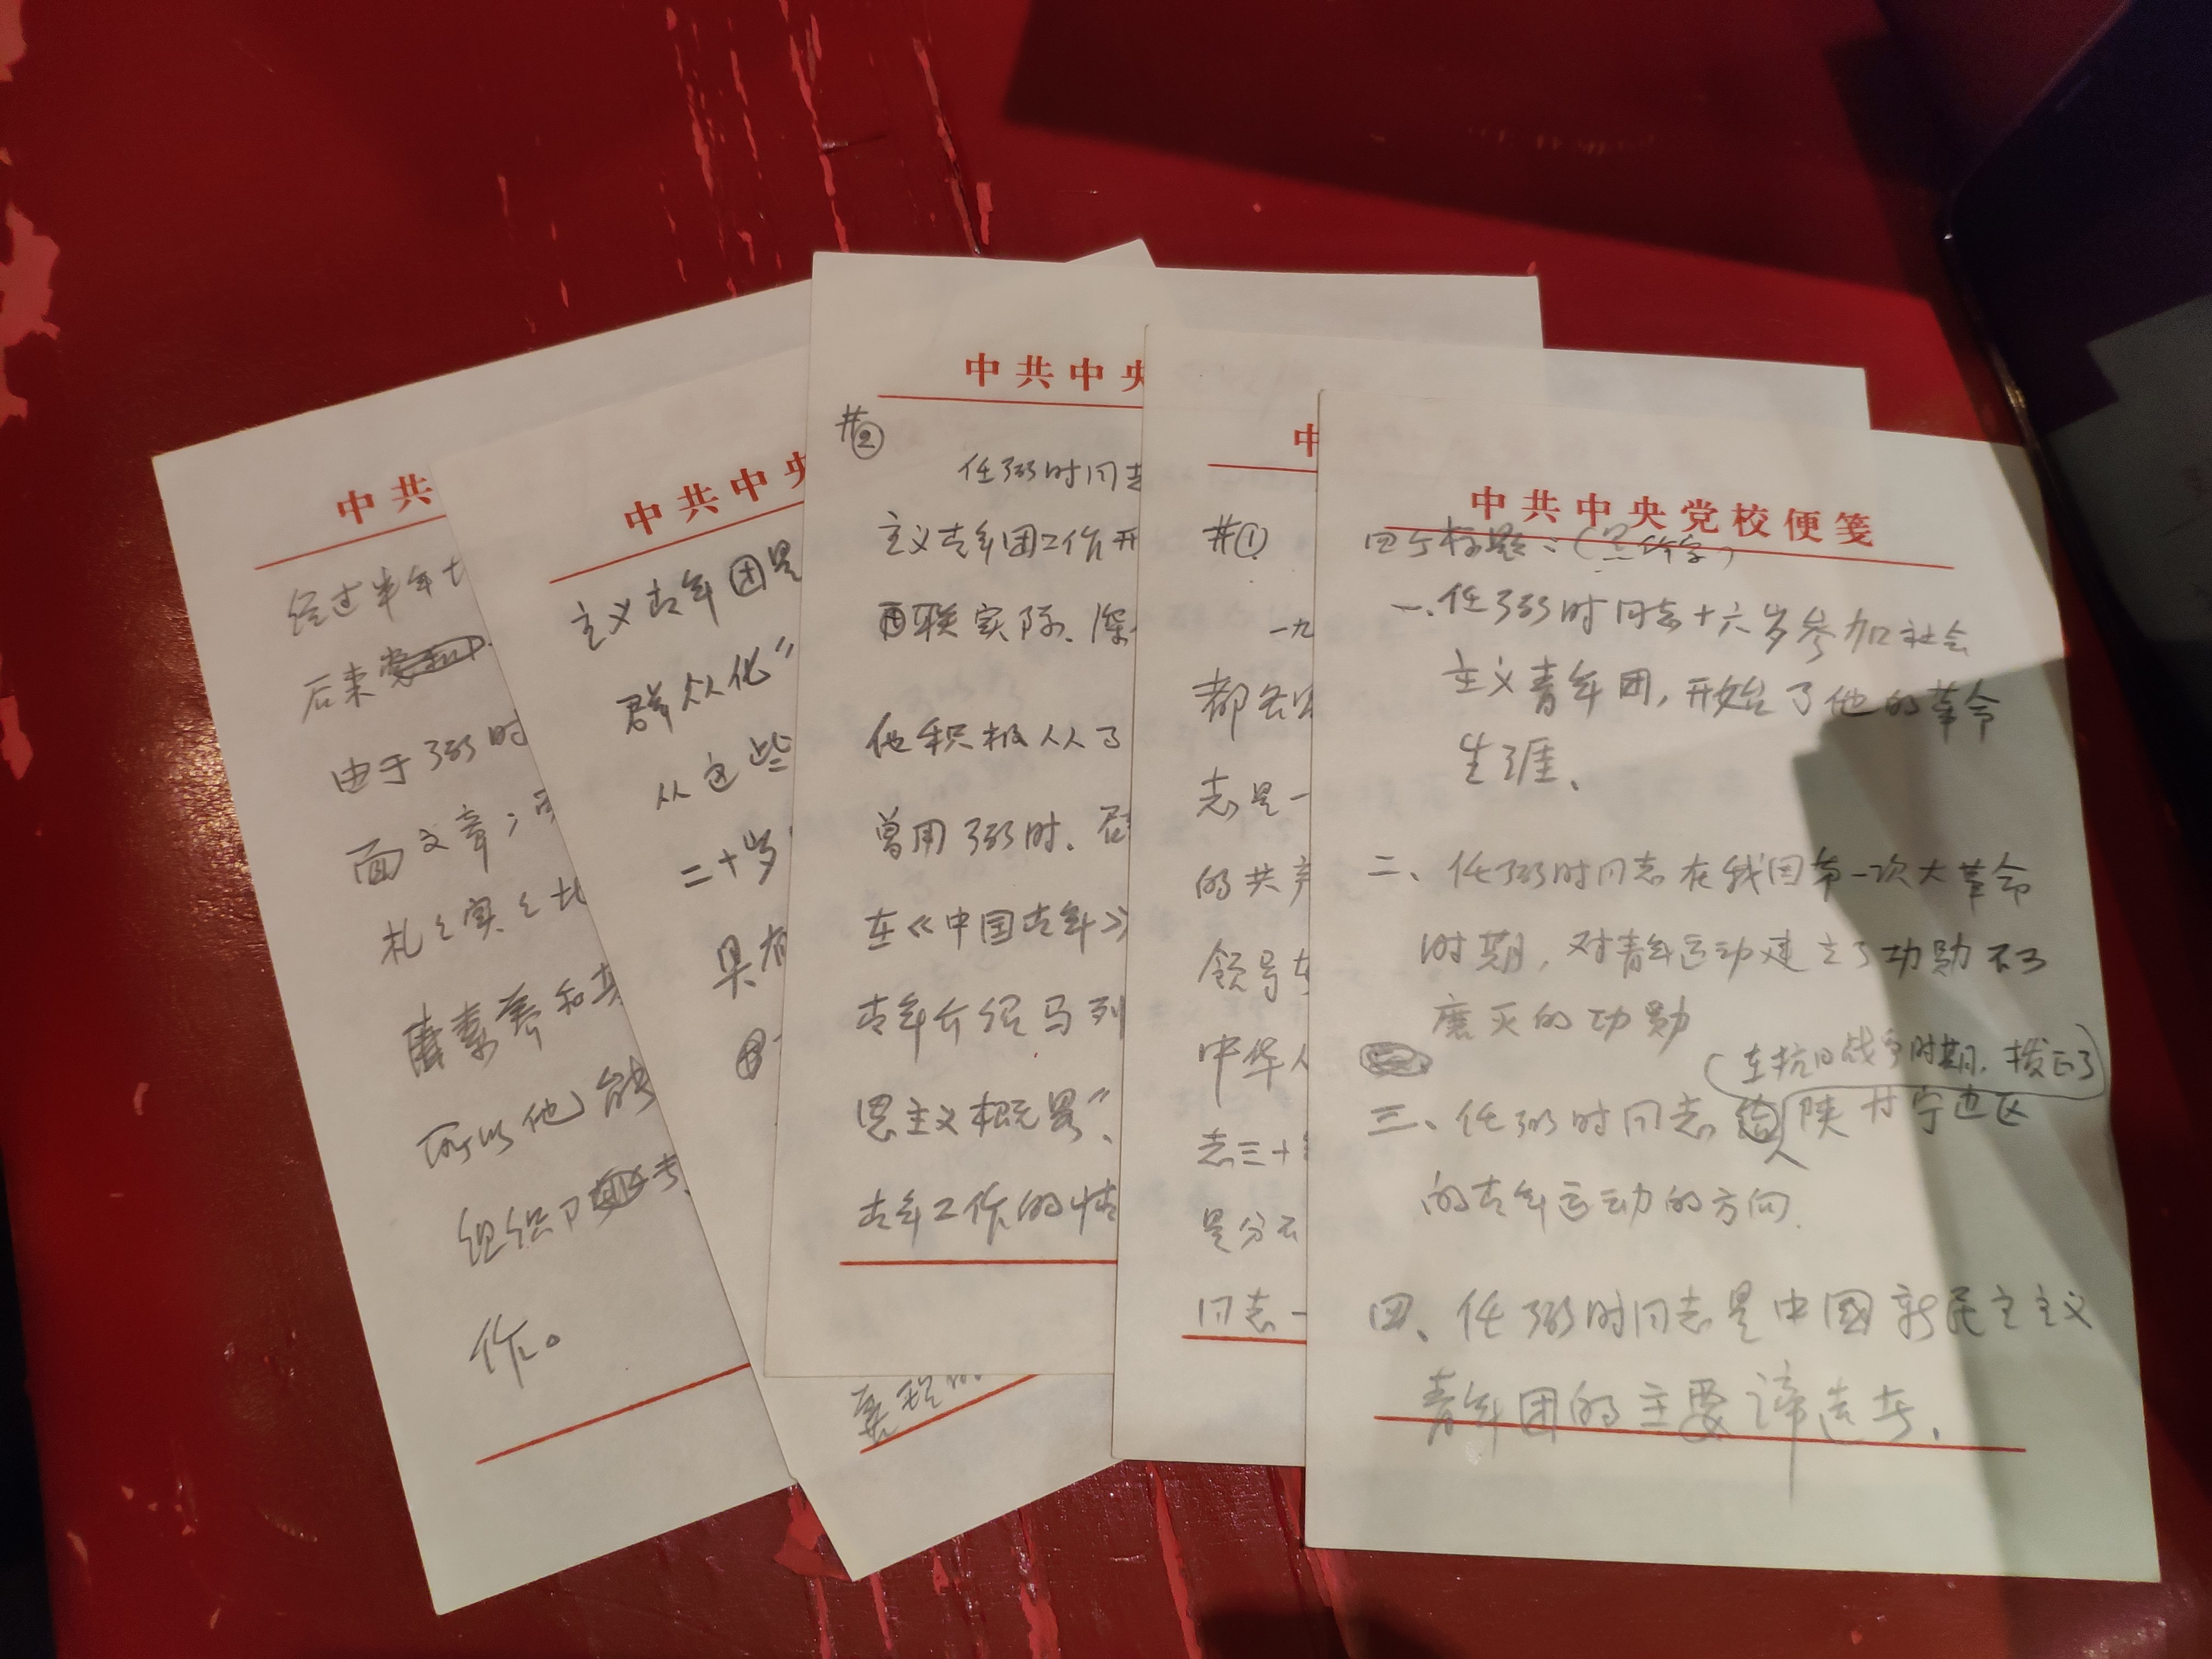 中共
经过半年
后来
由于弼时
面文章；
札々实々
素养和
所以他能
组织
作。
中共中央
主义青年团是
群众化"
从这些
二十岁
具有
中共中央
#②
任弼时同志
主义青年团工作开
联实际、深
他积极从了
曾用弼时、
在《中国青年》
青年介绍马列
思主义概略"、
青年工作的情
中
#①
一九
都
志是一
的共产
领导
中华人
志三十
是分不
同志一
中共中央党校便笺
四个标题：（黑体字）
一、任弼时同志十六岁参加社会
主义青年团，开始了他的革命
生涯、
二、任弼时同志在我国第一次大革命
时期，对青年运动建立了功勋不了
磨灭的功勋
（在抗日战争时期，拨正了）
三、任弼时同志 陕甘宁边区
的青年运动的方向.
四、任弼时同志是中國新民主主义
青年团的主要谛造者.